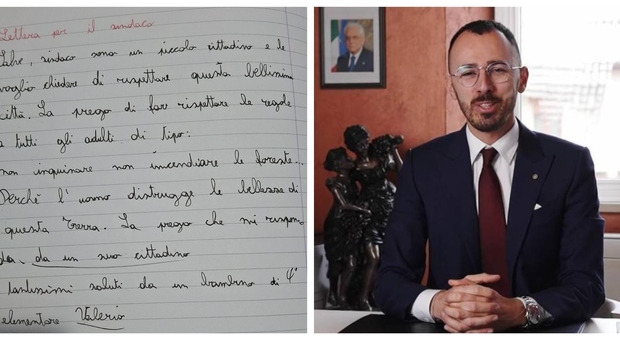 Lettera per il sindaco
Salve, sindaco sono un piccolo cittadino e le
voglio chiedere di rispettare questa bellissima
città. La prego di far rispettare le regole
a tutti gli adulti di tipo:
non inquinare non incendiare le foreste...
Perché l'uomo distrugge le bellezze di
questa Terra. La prego che mi rispon
da, da un suo cittadino
tantissimi saluti da un bambino di 4ª
elementare Valerio